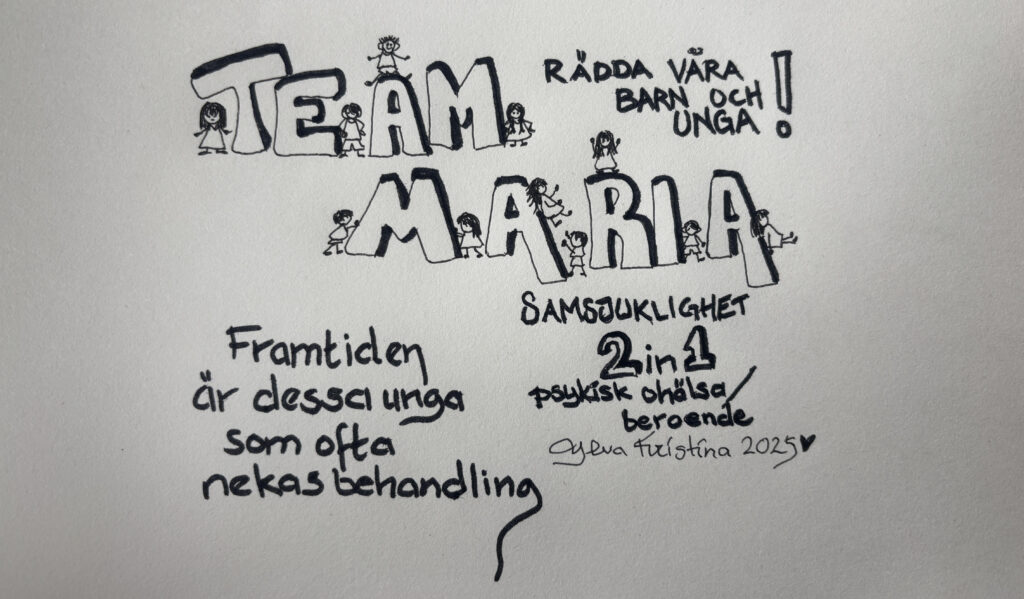 TEAM
RÄDDA VÅRA
BARN OCH
UNGA!
MARIA
SAMSJUKLIGHET
2 in 1
psykisk ohälsa/
beroende
Framtiden
är dessa unga
som ofta
nekas behandling
Kristina 2025